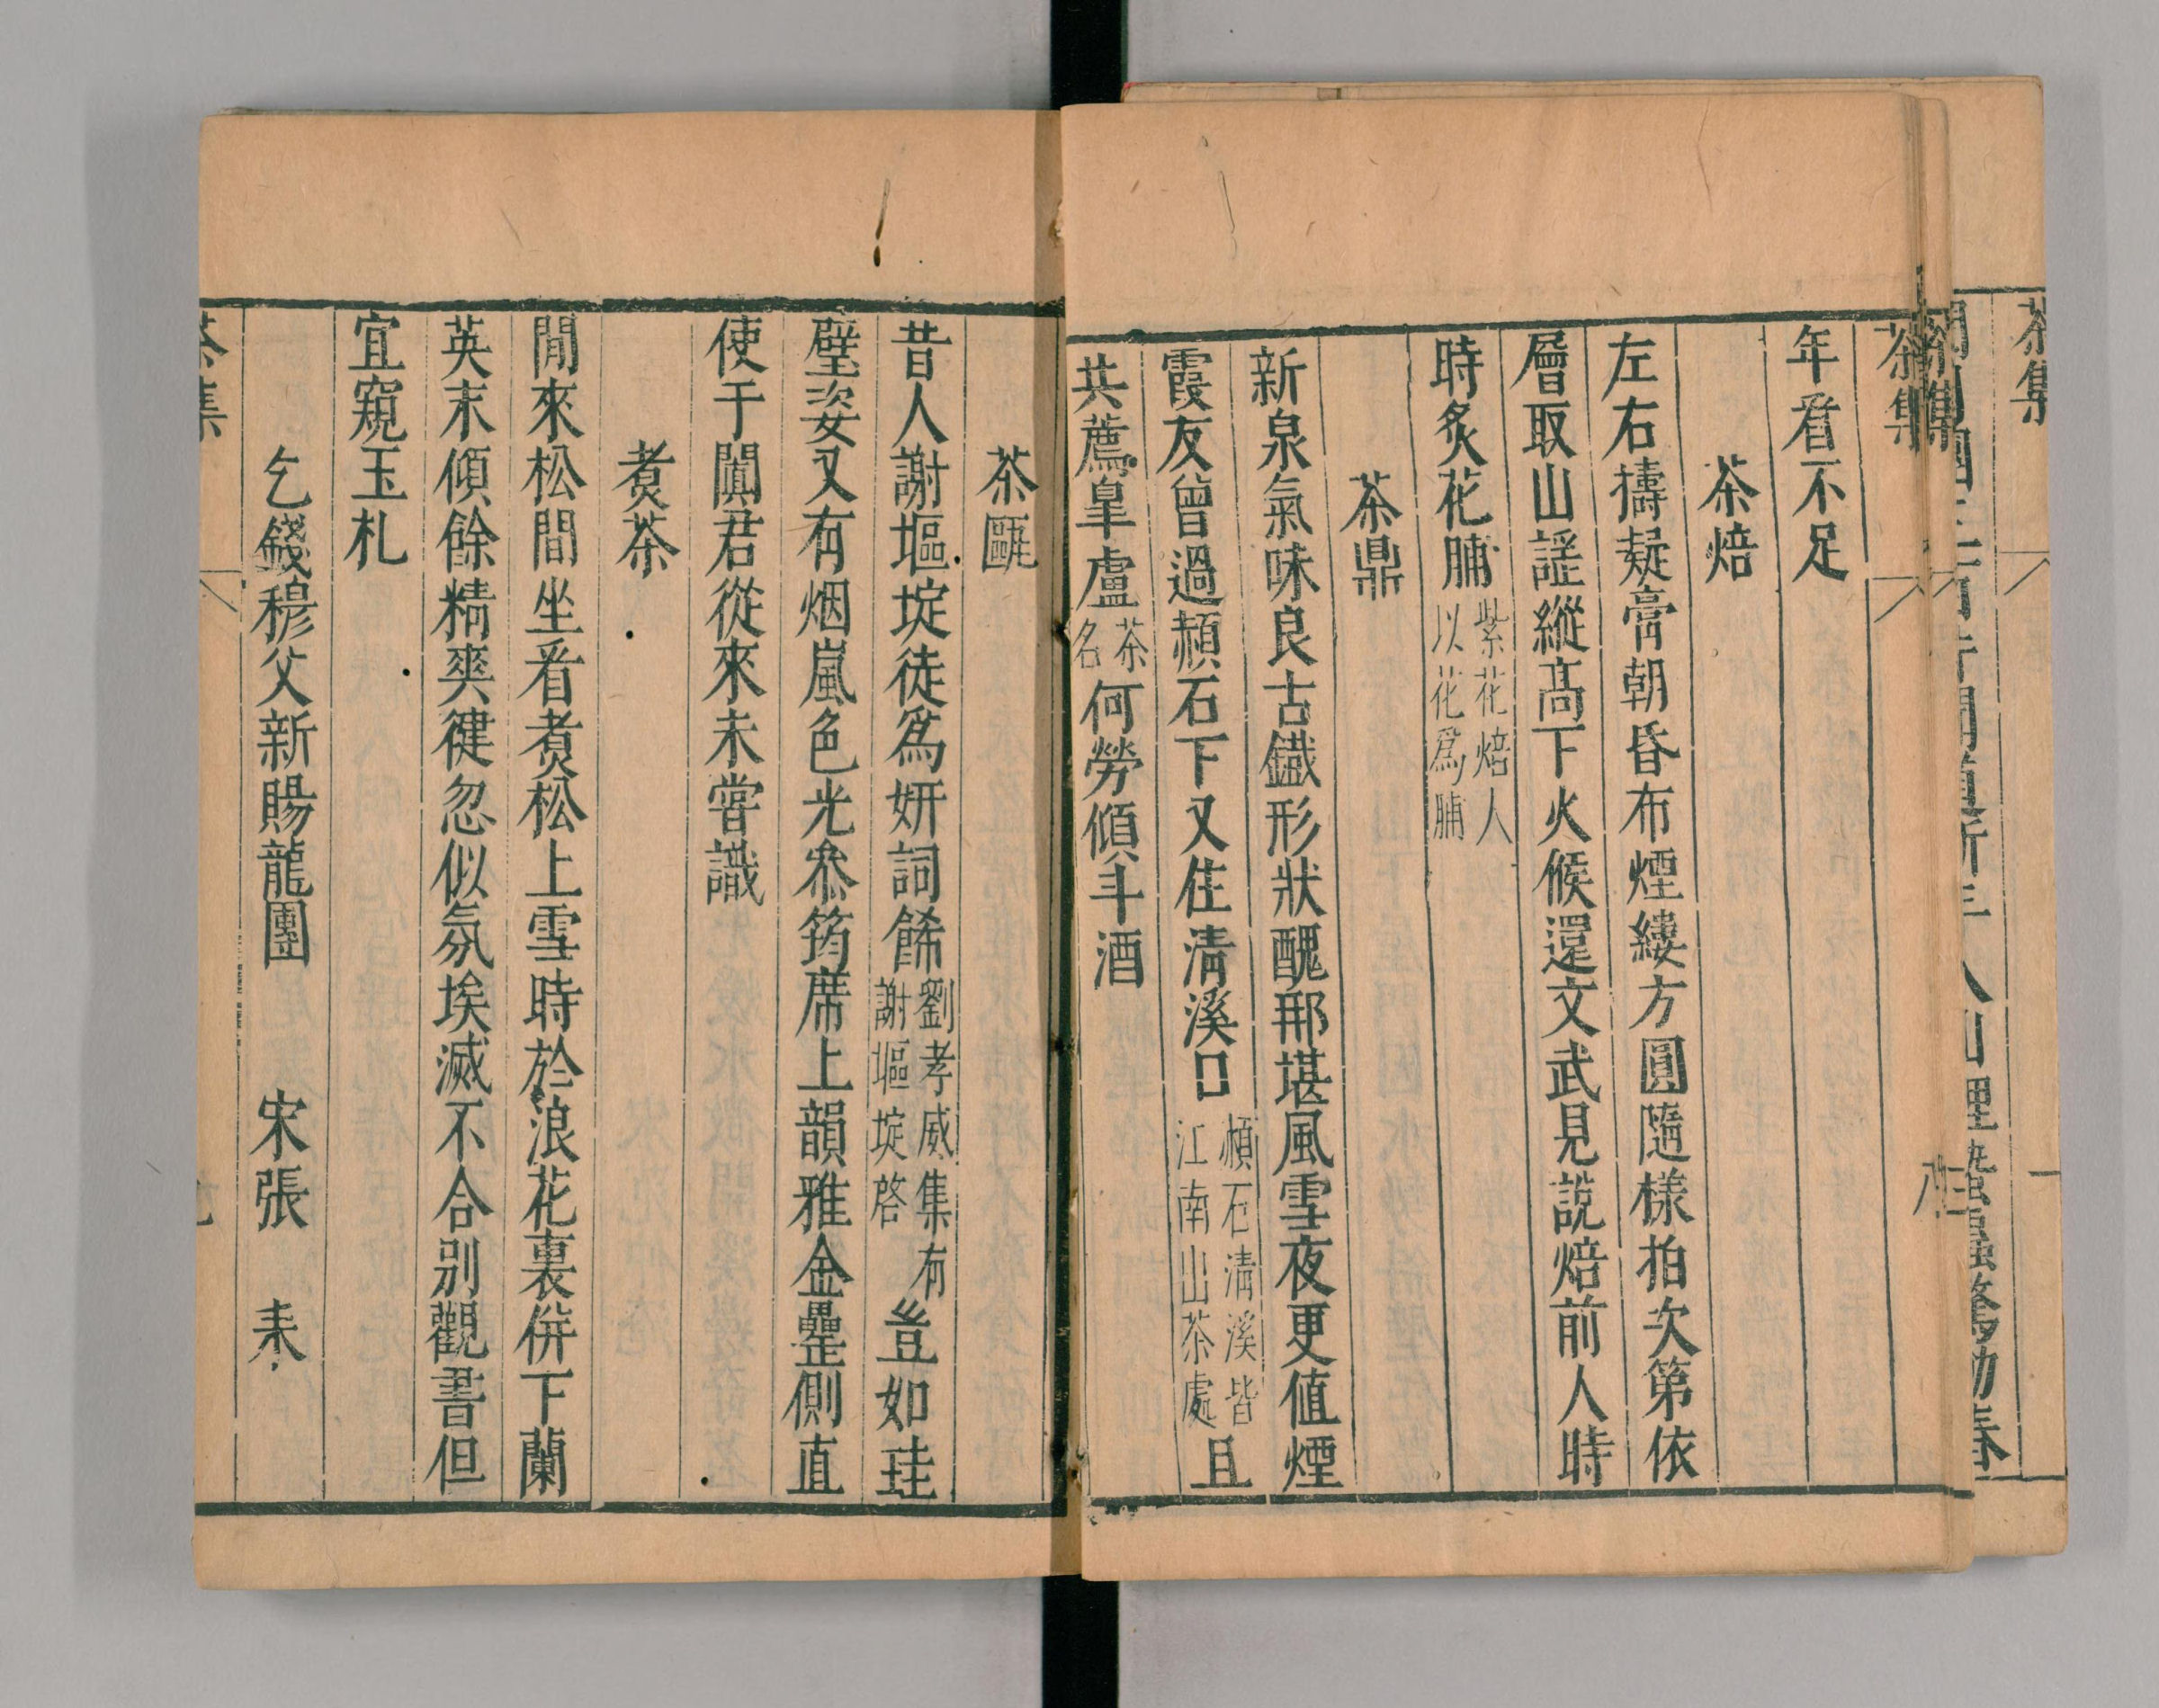 茶集
年看不足
茶焙
左右擣凝膏朝昏布煙縷方圓隨樣拍次第依
層取山謡縱高下火候還文武見説焙前人時
時炙花脯紫花焙人以花爲脯
茶鼎
新泉氣味良古鐵形狀醜那堪風雪夜更值煙
霞友曾過赬石下又住清溪口赬石清溪皆江南山茶處且
共薦臯盧茶名何勞傾斗酒
茶甌
昔人謝塸埞徒爲妍詞餙劉孝威集有謝塸埞啓豈如珪
璧姿又有烟嵐色光叅筠席上韻雅金罍側直
使于闐君從來未嘗識
煮茶
閒來松間坐看煑松上雪時於浪花裏併下蘭
英末傾餘精爽健忽似氛埃滅不合別觀書但
宜窺玉札
乞錢穆父新賜龍團 宋張 耒
茶集